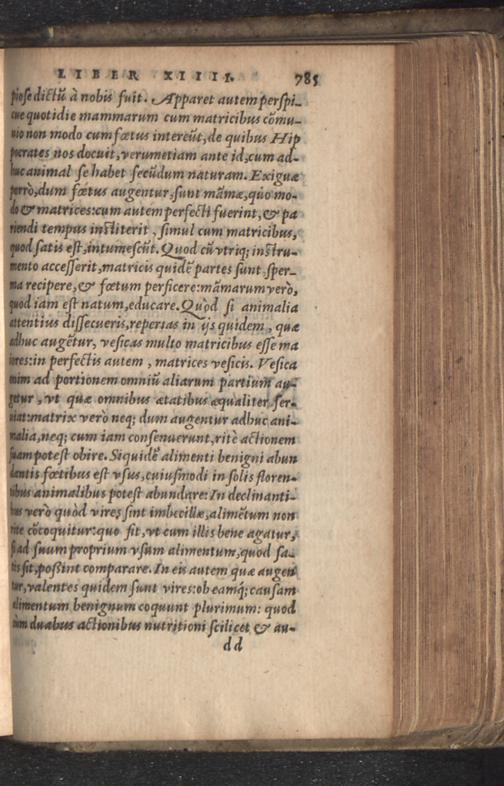 LIBER XIIII. 785
piose dictũ à nobis fuit. Apparet autem perspi-
cue quotidie mammarum cum matricibus cõmu-
nio non modo cum fœtus intereũt, de quibus Hip
pocrates nos docuit, verumetiam ante id, cum ad-
huc animal se habet secũdum naturam. Exiguæ
porrò, dum fœtus augentur, sunt mãmæ, quo mo-
do & matrices: cum autem perfecti fuerint, & pa
riendi tempus institerit, simul cum matricibus,
quod satis est, intumescũt. Quod cũ vtriq; instru-
mento accesserit, matricis quidẽ partes sunt sper-
ma recipere, & fœtum perficere: mãmarum verò,
quod iam est natum, educare. Quòd si animalia
attentius dissecueris, repertas in ijs quidem, quæ
adhuc augẽtur, vesicas multo matricibus esse ma
iores: in perfectis autem, matrices vesicis. Vesica
enim ad portionem omniũ aliarum partium au-
getur, vt quæ omnibus ætatibus æqualiter ser-
uiat: matrix verò neq; dum augentur adhuc ani-
malia, neq; cum iam consenuerunt, ritè actionem
suam potest obire. Siquidẽ alimenti benigni abun
dantis fœtibus est vsus, cuiusmodi in solis floren-
tibus animalibus potest abundare: In declinanti-
bus verò quòd vires sint imbecillæ, alimẽtum non
rite cõcoquitur: quo fit, vt cum illis bene agatur,
si ad suum proprium vsum alimentum, quod sa-
tis sit, possint comparare. In eis autem quæ augen
tur, valentes quidem sunt vires: ob eamq; causam
alimentum benignum coquunt plurimum: quod
cùm duabus actionibus nutritioni scilicet & au-
dd